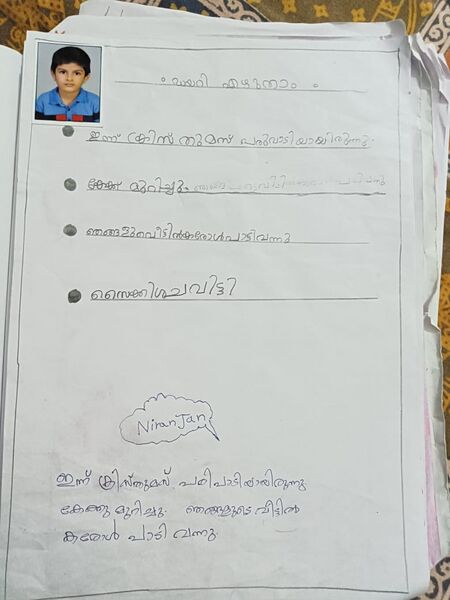 ഡയറി എഴുതാം
ഇന്ന് ക്രിസ്തുമസ് പരുവാടിയായിരുന്നു.
കേക്ക് മുറിച്ചു.
ഞങ്ങളുവീടിൽകരോൾപാടിവന്നു
സൈക്കിശചവിട്ടി
NiranJan
ഇന്ന് ക്രിസ്തുമസ് പരിപാടിയായിരുന്നു
കേക്കു മുറിച്ചു. ഞങ്ങളുടെ വീട്ടിൽ
കരോൾ പാടി വന്നു.